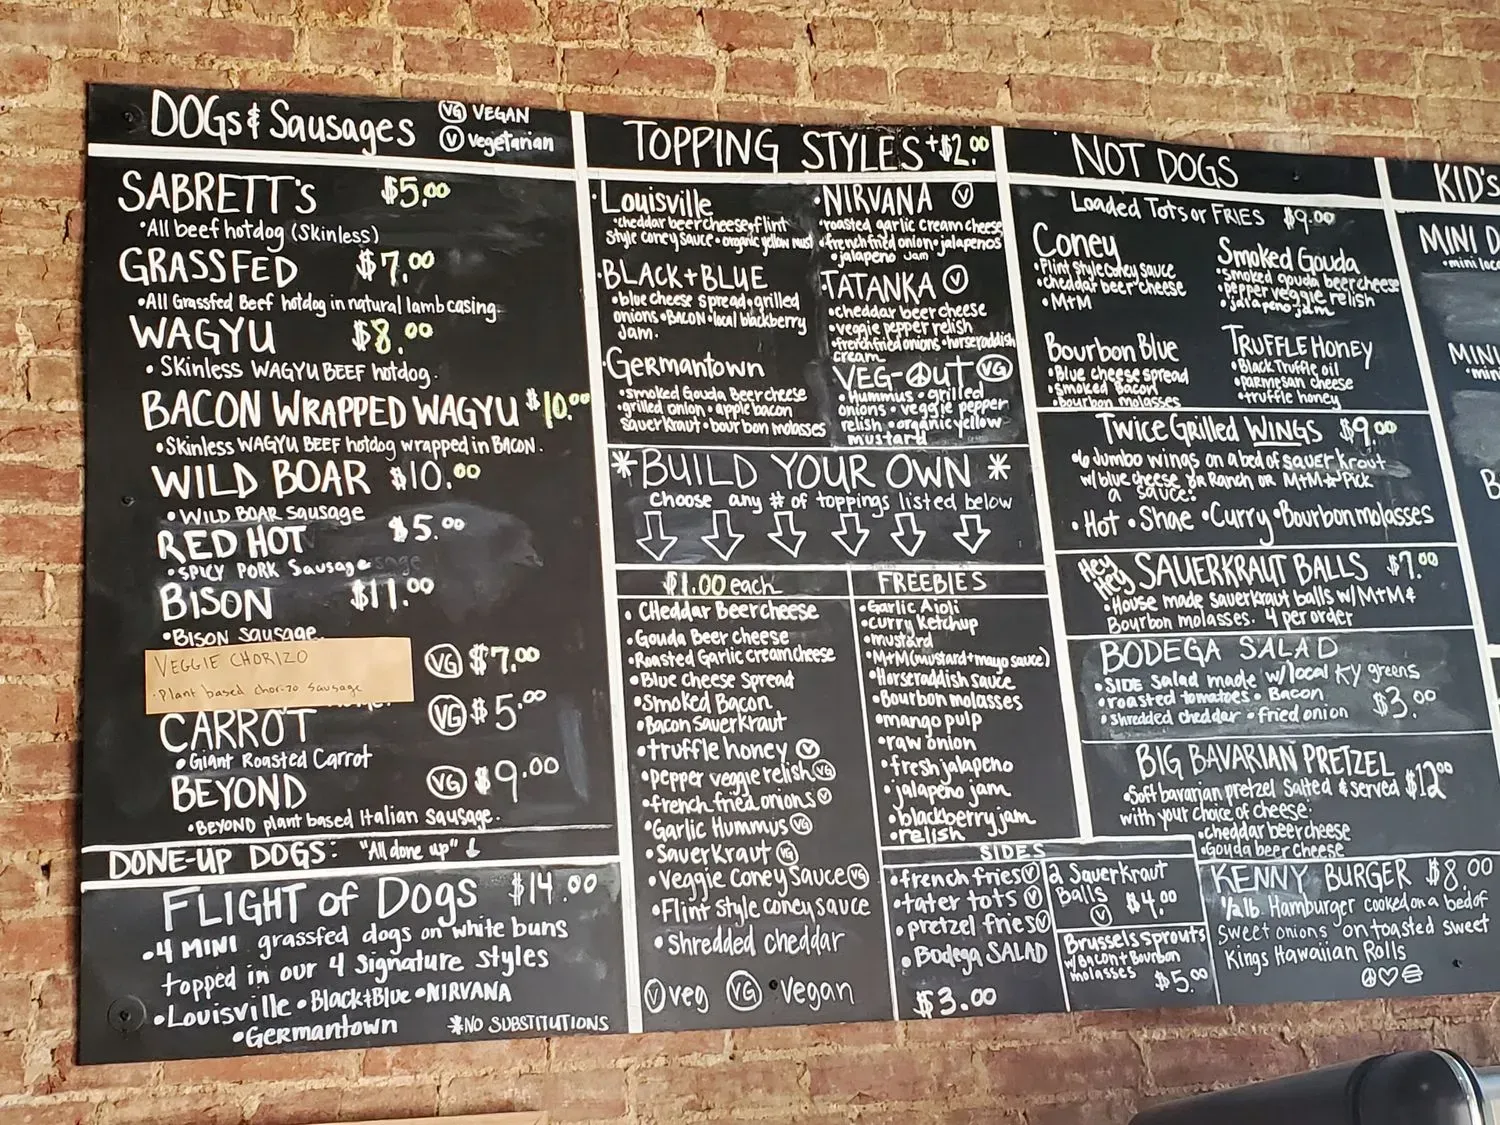 DOGs & Sausages
VG VEGAN
V vegetarian
SABRETT's $5.00
•All beef hotdog (Skinless)
GRASSFED $7.00
•All Grassfed Beef hotdog in natural lamb casing.
WAGYU $8.00
• Skinless WAGYU BEEF hotdog.
BACON WRAPPED WAGYU $10.00
•Skinless WAGYU BEEF hotdog wrapped in BACON.
WILD BOAR $10.00
• WILD BOAR Sausage
RED HOT $5.00
•SPICY PORK Sausage
BISON $11.00
•BISON Sausage
VEGGIE CHORIZO VG $7.00
•Plant based chorizo sausage
CARROT VG $5.00
•Giant Roasted Carrot
BEYOND VG $9.00
•BEYOND plant based Italian Sausage.
DONE-UP DOGS: "All done up" ↓
FLIGHT of Dogs $14.00
•4 MINI grassfed dogs on white buns
topped in our 4 Signature styles
•Louisville •Black+Blue •NIRVANA
•Germantown *NO SUBSTITUTIONS
TOPPING STYLES +$2.00
•Louisville
•cheddar beercheese•flint
style coney sauce•organic yellow must
•BLACK+BLUE
•blue cheese spread•grilled
onions•BACON•local blackberry
Jam.
•Germantown
•smoked Gouda Beercheese
•grilled onion•apple bacon
sauerkraut•bourbon molasses
•NIRVANA V
•roasted garlic cream cheese
•french fried onion•jalapenos
•jalapeno Jam
•TATANKA V
•cheddar beer cheese
•veggie pepper relish
•french fried onions•horseraddish
cream
VEG-OUT VG
•Hummus•grilled
onions•veggie pepper
relish•organic yellow
mustard
*BUILD YOUR OWN*
Choose any # of toppings listed below
$1.00 each
• Cheddar Beercheese
•Gouda Beer cheese
•Roasted Garlic creamcheese
•Blue Cheese Spread
•Smoked Bacon
•Bacon Sauerkraut
•truffle honey V
•pepper veggie relish VG
•french fried onions V
•Garlic Hummus VG
•Sauerkraut VG
•Veggie Coney Sauce VG
•Flint Style coney sauce
•shredded cheddar
V veg VG Vegan
FREEBIES
•Garlic Aioli
•curry Ketchup
•mustard
•M+M (mustard+mayo sauce)
•Horseraddish sauce
•Bourbon molasses
•mango pulp
•raw onion
•fresh jalapeno
•jalapeno jam
•blackberry jam
•relish
SIDES
•french fries V
•tater tots V
•pretzel fries V
•Bodega SALAD
$3.00
2 Sauerkraut
Balls
V $4.00
Brussels sprouts
w/ Bacon+Bourbon
molasses $5.00
NOT DOGS
Loaded Tots or FRIES $9.00
Coney
•Flint Style Coney sauce
•cheddar beer cheese
•M+M
Smoked Gouda
•smoked gouda beercheese
•pepper veggie relish
•jalapeno jam
Bourbon Blue
•Blue cheese spread
•smoked Bacon
•bourbon molasses
TRUFFLE HONEY
•Black Truffle oil
•parmesan cheese
•truffle honey
Twice Grilled WINGS $9.00
•6 Jumbo wings on a bed of sauer kraut
w/ blue cheese OR Ranch OR M+M* Pick
a sauce:
•Hot •Shae •Curry •Bourbon molasses
Hey Hey SAUERKRAUT BALLS $7.00
•House made sauerkraut balls w/ M+M &
Bourbon molasses. 4 per order
BODEGA SALAD
•SIDE salad made w/ local KY greens
•roasted tomatoes • Bacon
•shredded cheddar •fried onion $3.00
BIG BAVARIAN PRETZEL $12.00
•Soft bavarian pretzel Salted & served
with your choice of cheese:
•cheddar beercheese
•Gouda beer cheese
KENNY BURGER $8.00
1/2 lb. Hamburger cooked on a bed of
sweet onions on toasted sweet
Kings Hawaiian Rolls
KID's
MINI D
•mini
MINI
•mini
B